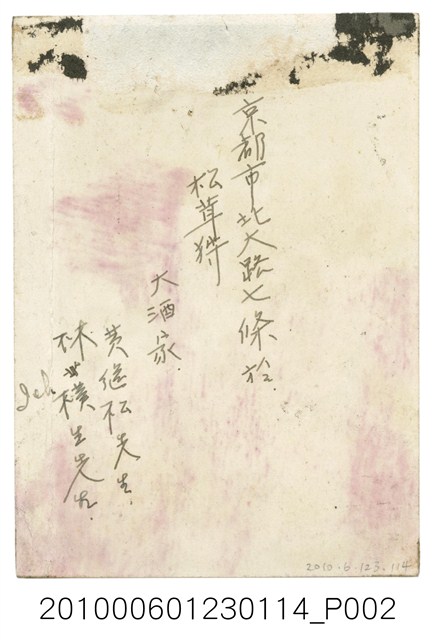 京都市北大路七條於
松茸狩
大酒家
黄继松先生
林世樸生先生
2010.6.123.114
201000601230114_P002